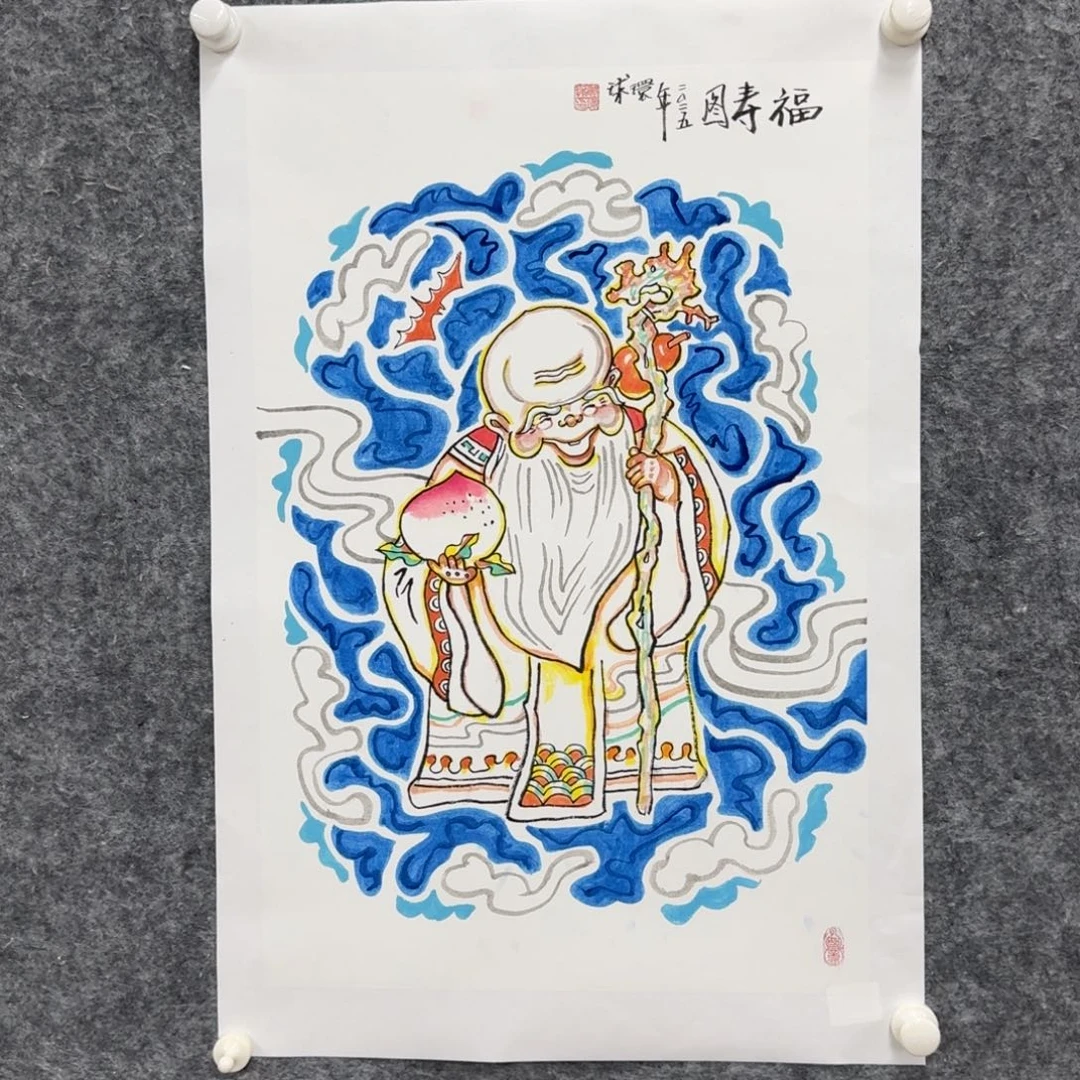 福寿图
二〇二五
年環球